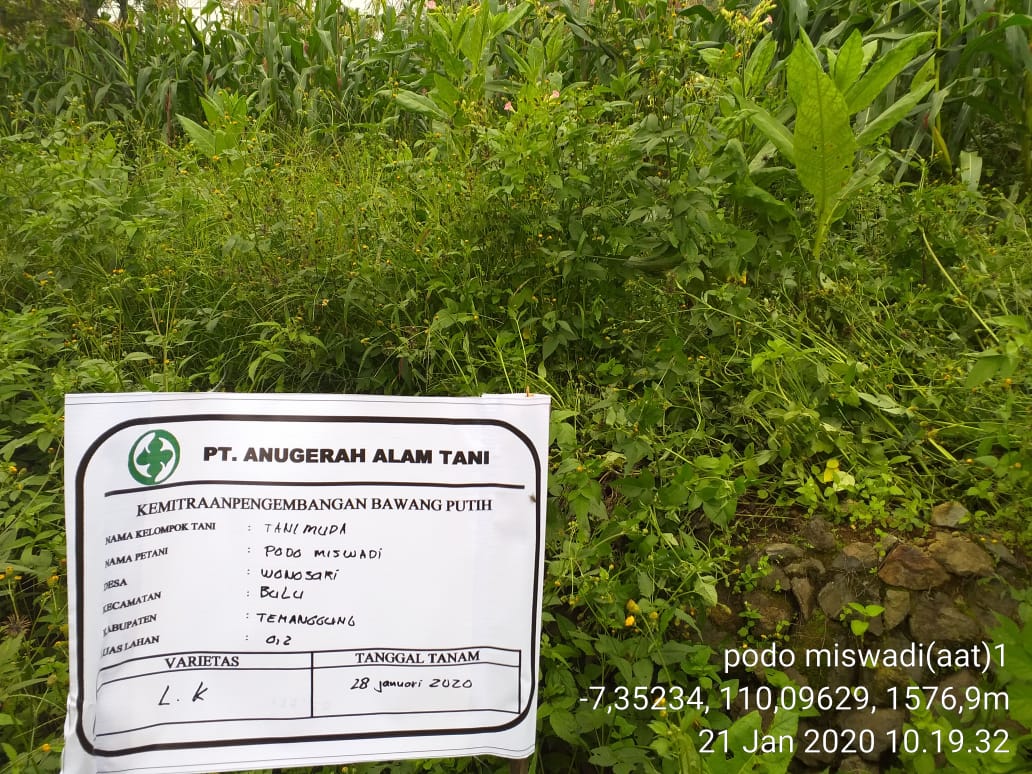 PT. ANUGERAH ALAM TANI
KEMITRAANPENGEMBANGAN BAWANG PUTIH
NAMA KELOMPOK TANI : TANI MUDA
NAMA PETANI : PODO MISWADI
DESA : WONOSARI
KECAMATAN : BULU
KABUPATEN : TEMANGGUNG
LUAS LAHAN : 0,2
VARIETAS TANGGAL TANAM
L.K 28 januari 2020
podo miswadi(aat)1
-7,35234, 110,09629, 1576,9m
21 Jan 2020 10.19.32